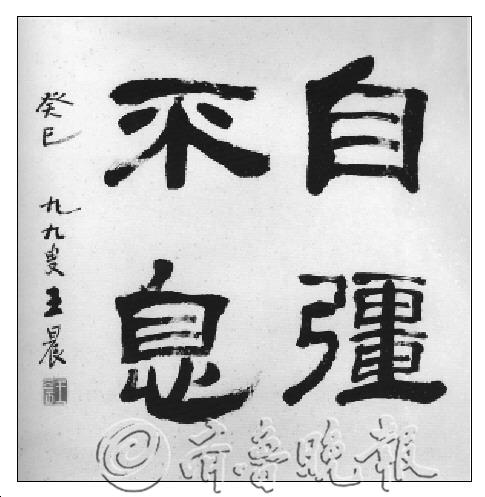 自彊
不息
癸巳 九九叟王晨
齊魯晚報